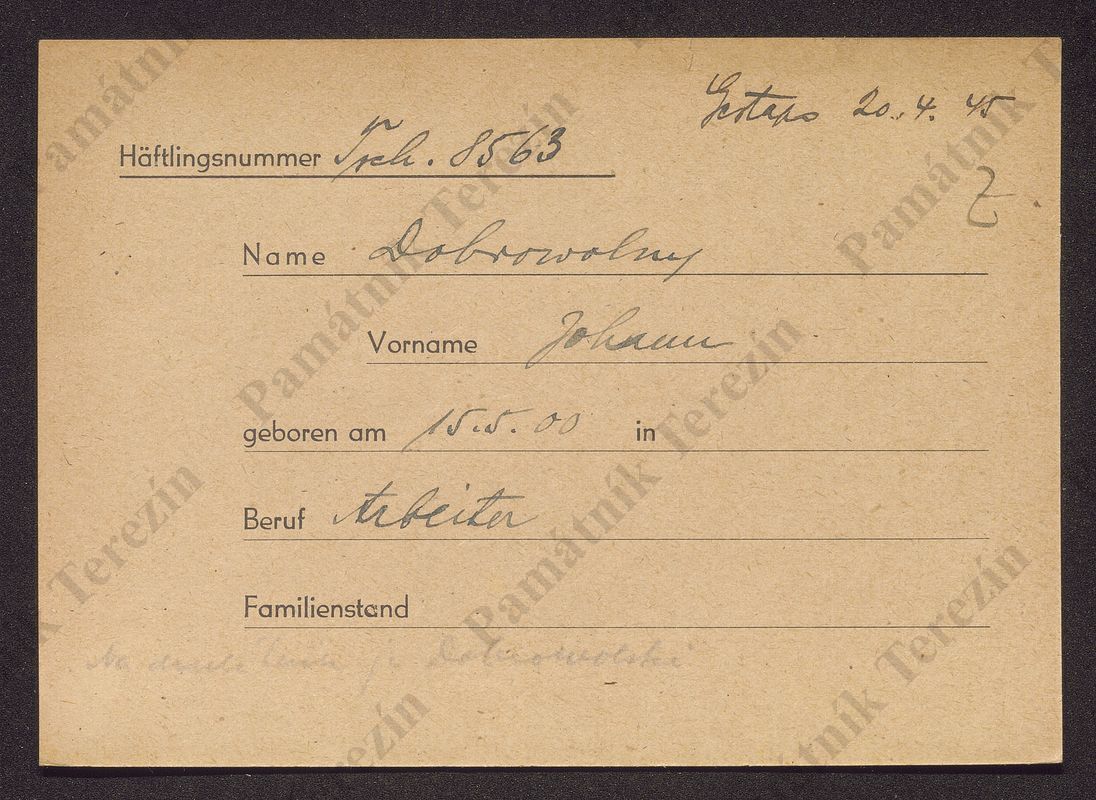 Gestapo 20.4.45
Häftlingsnummer Tsch. 8563
Z
Name Dobrowolny
Vorname Johann
geboren am 15.5.00 in
Beruf Arbeiter
Familienstand
Na je Dobrowolski
Památník Terezín